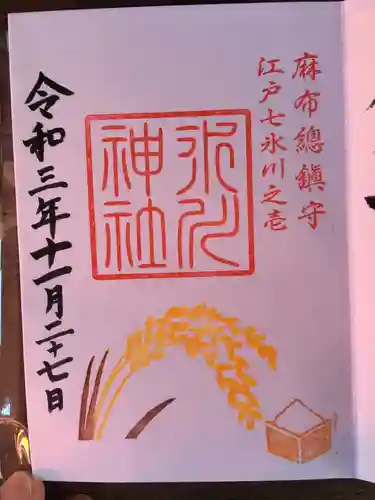 麻布總鎮守
江戸七氷川之壱
氷川神社
令和三年十一月二十七日